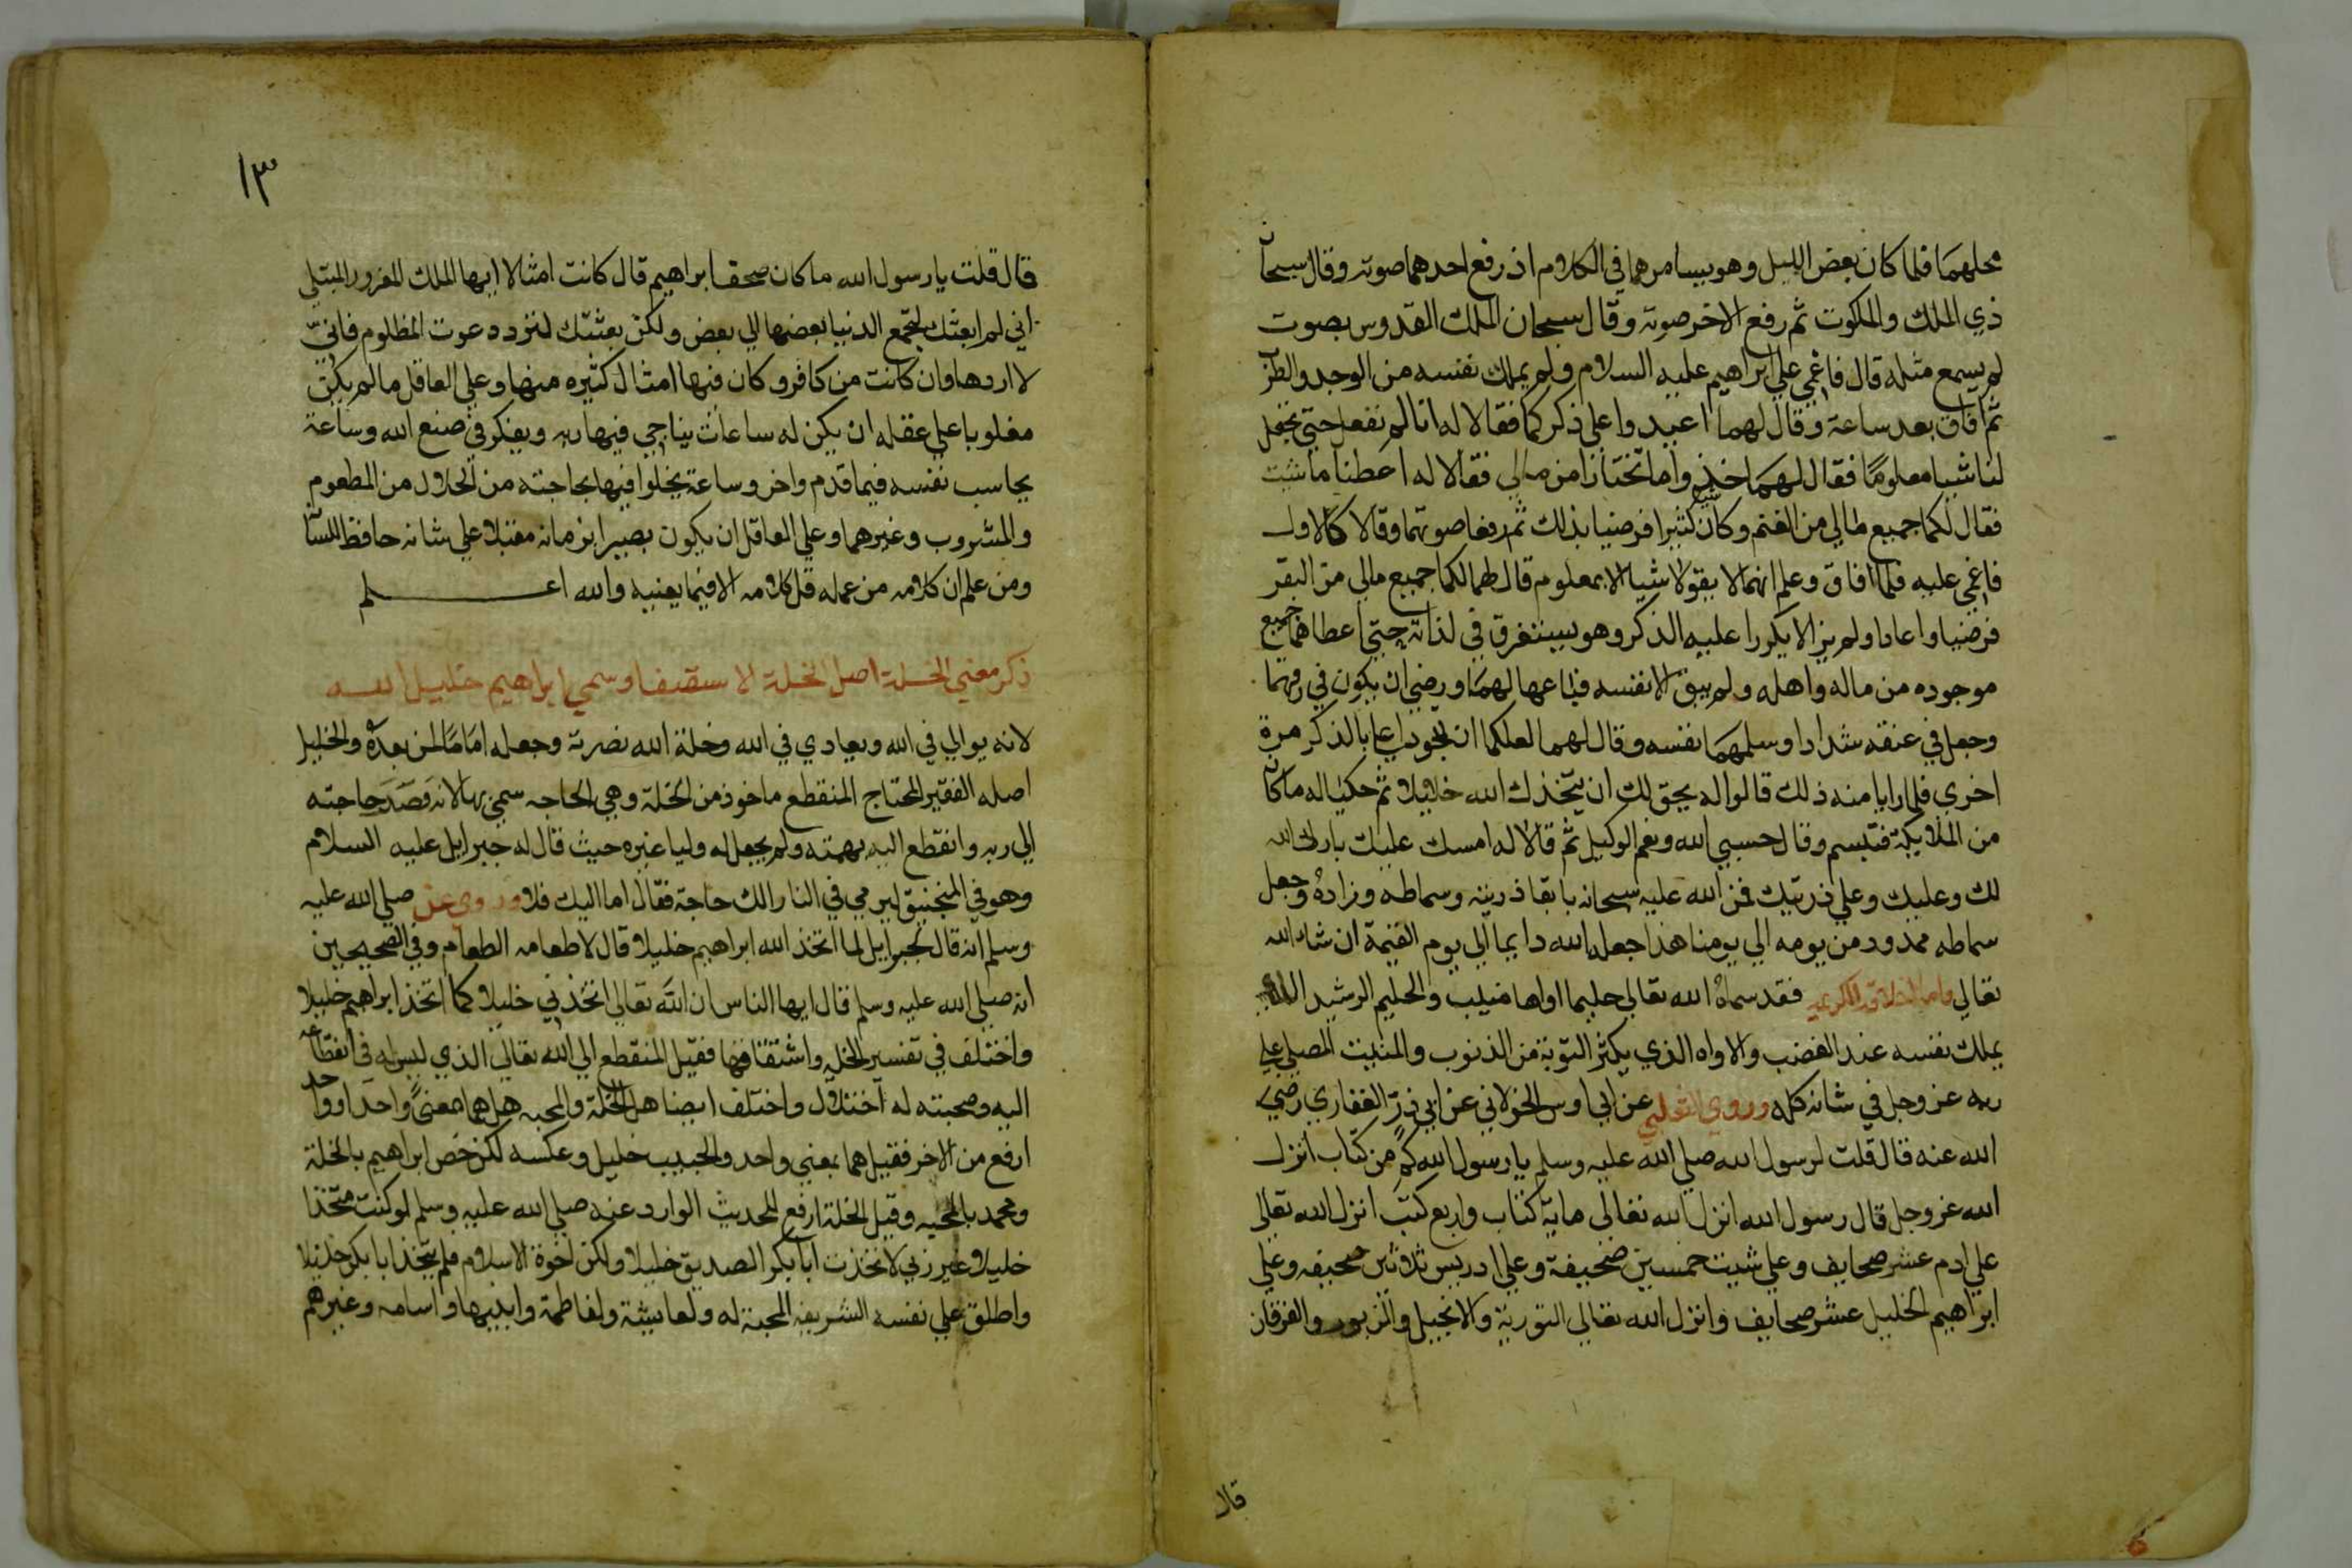 محلهما فلما كان بعض الليل وهو يسامرهما في الكلام اذ رفع احدهما صوته وقال سبحان
ذي الملك والملكوت ثم رفع الاخر صوته وقال سبحان الملك القدوس بصوت
لم يسمع مثله قال فاغمي علي ابراهيم عليه السلام ولم يملك نفسه من الوجد والطرب
ثم افاق بعد ساعة وقال لهما اعيدوا علي ذكركما فقالا له انا لم نفعل حتي تجعل
لنا شيا معلوما فقال لهما خذوا ما تختارا من مالي فقالا له اعطنا ما شيت
فقال لكما جميع مالي من الغنم وكان كثيرا فرضيا بذلك ثم رفعا صوتهما وقالا كالاول
فاغمي عليه فلما افاق وعلم انهما لا يقولا شيا الا بمعلوم قال لهما لكما جميع مالي من البقر
فرضيا واعادا ولم يزالا يكررا عليه الذكر وهو يستغرق في لذاته حتي اعطاهما جميع
موجوده من ماله واهله ولم يبق الا نفسه فباعها لهما ورضي ان يكون في رقهما
وجعل في عنقه شدادا وسلمهما نفسه وقال لهما لعلكما ان تجودا علي بالذكر مرة
اخري فلما رايا منه ذلك قالوا له يحق لك ان يتخذك الله خليلا ثم حكيا له ما كان
من الملايكة فتبسم وقال حسبي الله ونعم الوكيل ثم قالا له امسك عليك بارك الله
لك وعليك وعلي ذريتك فمن الله عليه سبحانه بابقا ذريته وسماطه وزاده وجعل
سماطه ممدود من يومه الي يومنا هذا جعله الله دايما الي يوم القيمة ان شاء الله
تعالي واما اخلاقه الكريمه فقد سماه الله تعالي حليما اواها منيب والحليم الرشيد الذي
يملك نفسه عند الغضب والاواه الذي يكثر التوبة من الذنوب والمنيب المصلي علي
ربه عز وجل في شانه كله وروي الثعلبي عن ابي اوس الخولاني عن ابي ذر الغفاري رضي
الله عنه قال قلت لرسول الله صلي الله عليه وسلم يا رسول الله كم من كتاب انزل
الله عز وجل قال رسول الله انزل الله تعالي ماية كتاب واربع كتب انزل الله تعالي
علي ادم عشر صحايف وعلي شيث خمسين صحيفة وعلي ادريس ثلاثين صحيفه وعلي
ابراهيم الخليل عشر صحايف وانزل الله تعالي التورية والانجيل والزبور والفرقان
قال
١٣
قال قلت يا رسول الله ما كان صحف ابراهيم قال كانت امثالا ايها الملك المغرور المبتلي
اني لم ابعثك لتجمع الدنيا بعضها الي بعض ولكن بعثتك لترد دعوت المظلوم فاني
لا اردها وان كانت من كافر وكان فيها امثال كثيره منها وعلي العاقل ما لم يكن
مغلوبا علي عقله ان يكن له ساعات يناجي فيها ربه ويفكر في صنع الله وساعة
يحاسب نفسه فيما قدم واخر وساعة يخلوا فيها بحاجته من الحلال من المطعوم
والمشروب وغيرهما وعلي العاقل ان يكون بصيرا بزمانه مقبلا علي شانه حافظ اللسان
ومن علم ان كلامه من عمله قل كلامه الا فيما يعنيه والله اعلم
ذكر معني الخلة اصل الخلة الاستصفا وسمي ابراهيم خليل الله
لانه يوالي في الله ويعادي في الله وخلة الله نصرته وجعله اماما لمن بعده والخليل
اصله الفقير المحتاج المنقطع ماخوذ من الخلة وهي الحاجه سمي بها لانه قصد حاجته
الي ربه وانقطع اليه بهمته ولم يجعل له وليا غيره حيث قال له جبرايل عليه السلام
وهو في المنجنيق ليرمي في النار الك حاجة فقال اما اليك فلا وروي عن صلي الله عليه
وسلم انه قال لجبرايل لما اتخذ الله ابراهيم خليلا قال لاطعامه الطعام وفي الصحيحين
انه صلي الله عليه وسلم قال ايها الناس ان الله تعالي اتخذني خليلا كما اتخذ ابراهيم خليلا
واختلف في تفسير الخله واشتقاقها فقيل المنقطع الي الله تعالي الذي ليس له في انقطاعه
اليه ومحبته له اختلال واختلف ايضا هل الخلة والمحبه هل هما معنى واحدا وواحد
ارفع من الاخر فقيل هما بمعني واحد والحبيب خليل وعكسه لكن خص ابراهيم بالخلة
ومحمد بالمحبه وقيل الخلة ارفع للحديث الوارد عنه صلي الله عليه وسلم لو كنت متخذا
خليلا غير ربي لاتخذت ابا بكر الصديق خليلا ولكن اخوة الاسلام فلم يتخذ ابا بكر خليلا
واطلق علي نفسه الشريفه المحبة له ولعايشة ولفاطمة وابنيها واسامه وغيرهم